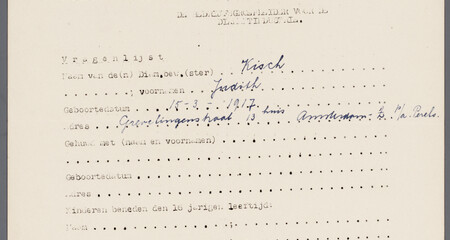 V r a g e n l i j s t
Naam van de(n) Dien.oev.(ster) Kisch
; voornamen Judith
Geboortedatum 15-3-1917
Adres Grevelingenstraat 13 huis Amsterdam-Z. p/a Perels.
Gehuwd met (naam en voornamen)
Geboortedatum
Adres
Kinderen beneden den 16 jarigen leeftijd:
Naam ;